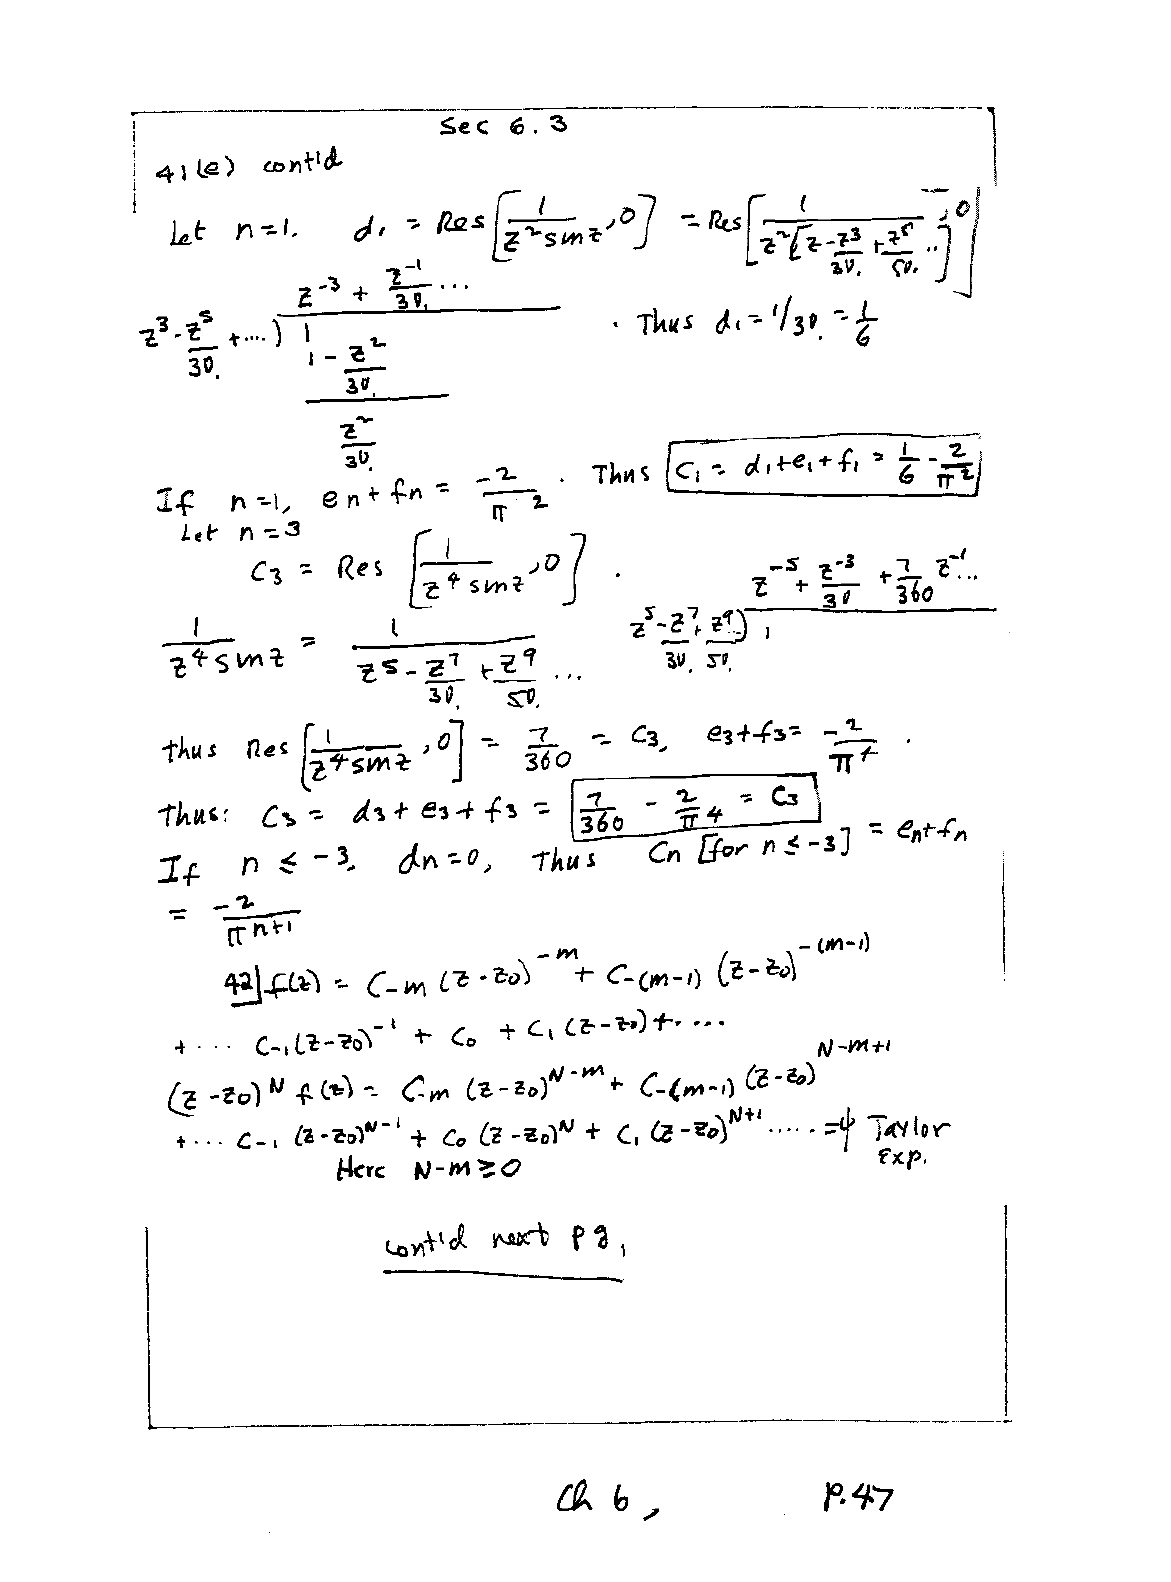 Sec 6.3
41(e) cont'd
Let n=1. d₁ = Res[1/(z² sin z), 0] = Res[1/(z²[z - z³/3! + z⁵/5! ..]), 0]
z⁻³ + z⁻¹/3! ...
z³ - z⁵/3! + ....) 1
1 - z²/3!
z²/3!
. Thus d₁ = 1/3! = 1/6
If n=1, en + fn = -2/π² . Thus C₁ = d₁+e₁+f₁ = 1/6 - 2/π²
Let n=3
C₃ = Res [1/(z⁴ sin z), 0] .
z⁻⁵ + z⁻³/3! + 7/360 z⁻¹...
z⁵ - z⁷/3! + z⁹/5! ..) 1
1/(z⁴ sin z) = 1/(z⁵ - z⁷/3! + z⁹/5! ...)
thus Res [1/(z⁴ sin z), 0] = 7/360 = C₃, e₃+f₃ = -2/π⁴ .
Thus: C₃ = d₃ + e₃ + f₃ = 7/360 - 2/π⁴ = C₃
If n ≤ -3, dn = 0, Thus Cn [for n ≤ -3] = en+fn
= -2/πⁿ⁺¹
42| f(z) = C-m (z-z₀)^-m + C-(m-1) (z-z₀)^-(m-1)
+ ... C-₁(z-z₀)⁻¹ + C₀ + C₁ (z-z₀) + ....
(z-z₀)^N f(z) = C-m (z-z₀)^N-m + C-(m-1) (z-z₀)^N-m+1
+ ... C-₁ (z-z₀)^N-1 + C₀ (z-z₀)^N + C₁ (z-z₀)^N+1 ..... = ψ Taylor
Exp.
Here N-m ≥ 0
cont'd next pg.
Ch 6, p.47